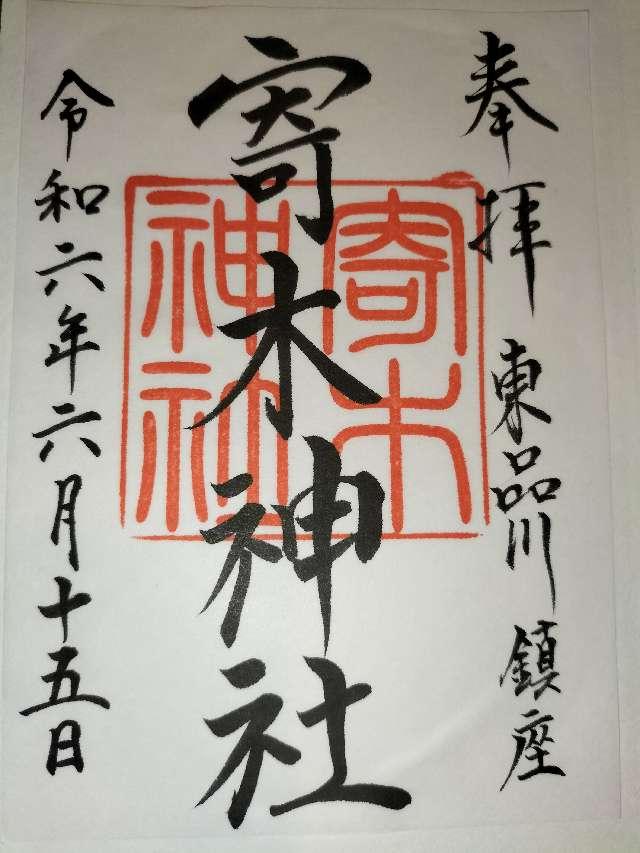 奉拝 東品川 鎮座
寄木神社
令和六年六月十五日
寄木
神社